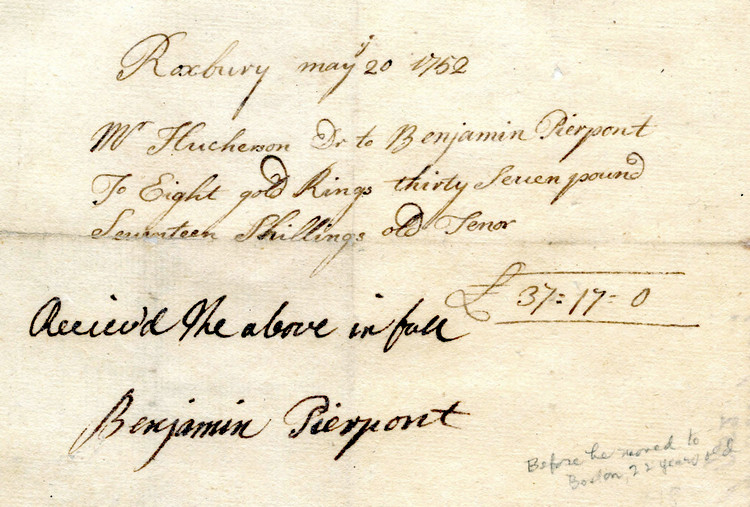 Roxbury may ye 20 1752
Mr Hucherson Dr to Benjamin Pierpont
To Eight gold Rings thirty Seven pound
Seventeen Shillings old Tenor
£ 37=17=0
Reciev'd the above in full
Benjamin Pierpont
Before he moved to
Boston, 22 years old